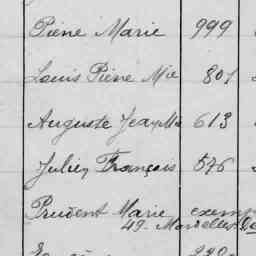 Pierre Marie 999
Louis Pierre Mie 801
Auguste Jean Mie 613
Julien François 576
Prudent Marie exemp
49. Morvelles